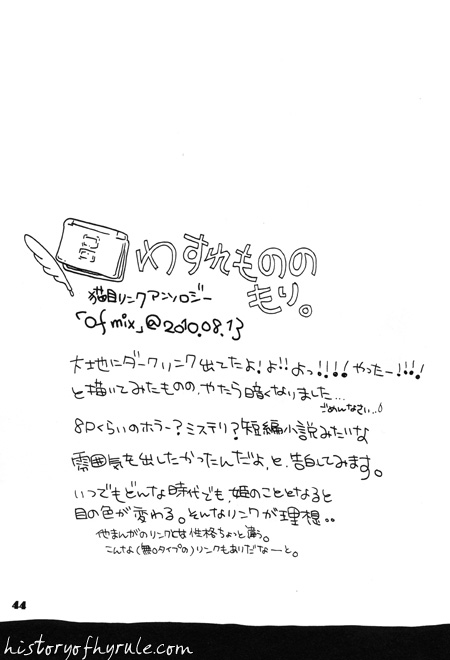 わすれものの
もり。
猫目リンクアンソロジー
「Of mix」@2010.08.13
大地にダークリンク出てたよ!よ!!よっ!!!!やったー!!!!
と描いてみたものの、やたら暗くなりました…
ごめんなさい…
8Pくらいのホラー?ミステリ?短編小説みたいな
雰囲気を出したかったんだよ、と、告白してみます。
いつでもどんな時代でも、姫のこととなると
目の色が変わる。そんなリンクが理想..
他まんがのリンクとは性格ちょっと違う。
こんな(無口タイプの)リンクもありだなーと。
44
historyofhyrule.com